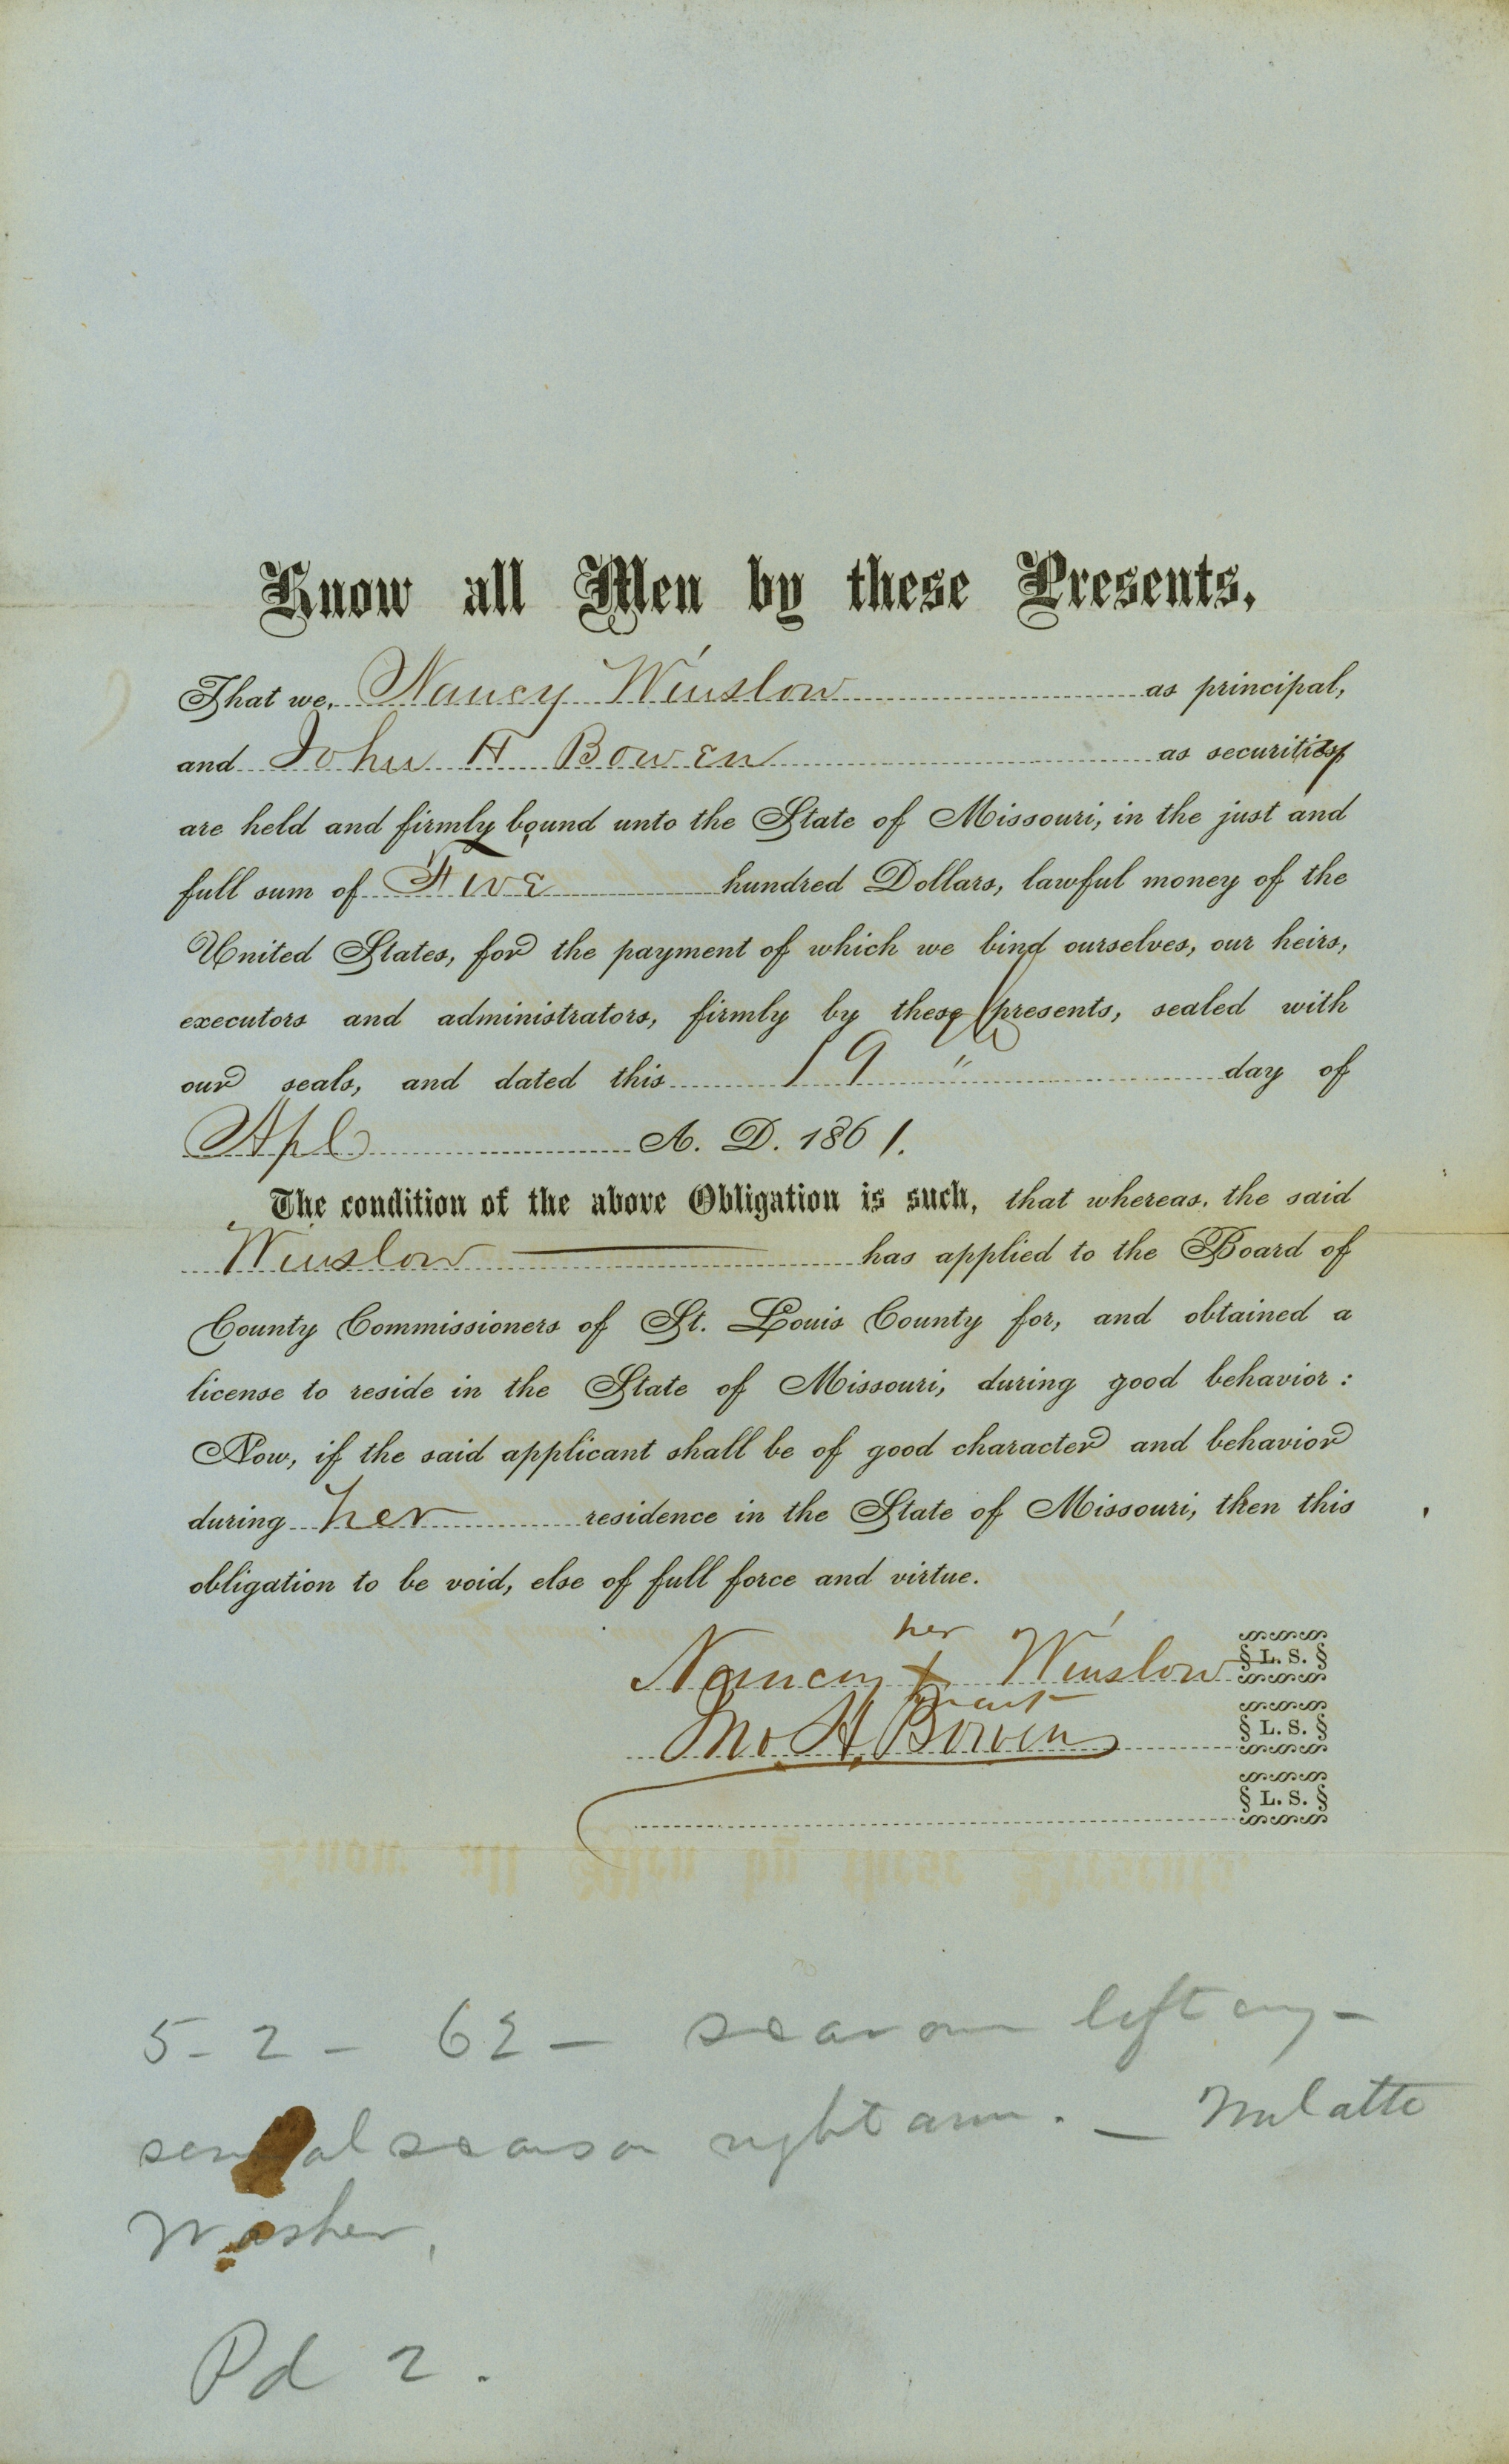 Know all Men by these Presents,
That we, Nancy Winslow as principal,
and John H Bowen as security
are held and firmly bound unto the State of Missouri, in the just and
full sum of Five hundred Dollars, lawful money of the
United States, for the payment of which we bind ourselves, our heirs,
executors and administrators, firmly by these presents, sealed with
our seals, and dated this 19th day of
Apl A. D. 1861.
The condition of the above Obligation is such, that whereas, the said
Winslow has applied to the Board of
County Commissioners of St. Louis County for, and obtained a
license to reside in the State of Missouri, during good behavior:
Now, if the said applicant shall be of good character and behavior
during her residence in the State of Missouri, then this
obligation to be void, else of full force and virtue.
her
Nancy x Winslow L. S.
mark
Jno. H. Bowen L. S.
L. S.
5-2-62- scar on left eye-
several scars on right arm. - Mulatto
Washer,
Pd 2.